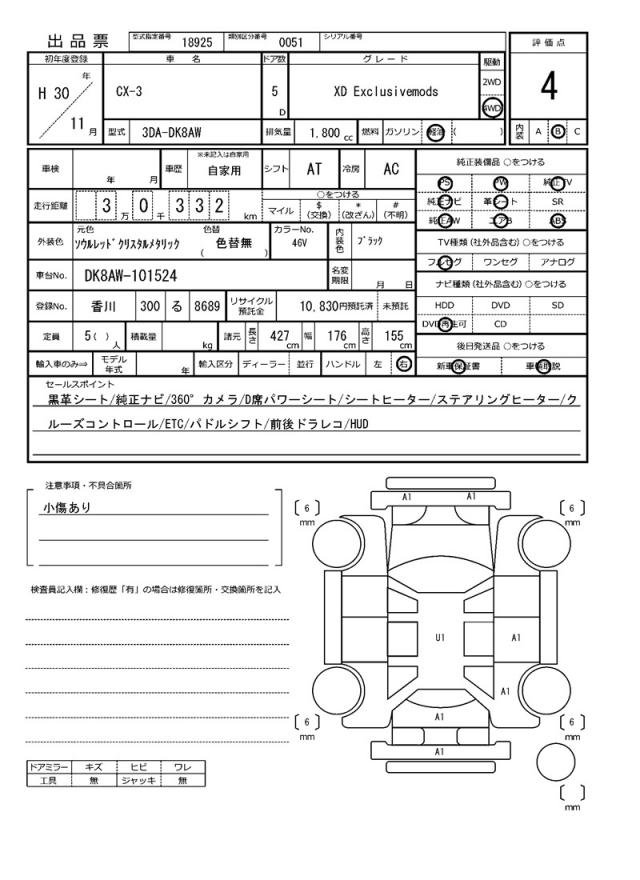 出品票 型式指定番号 18925 類別区分番号 0051 シリアル番号
評価点
4
内装 A B C
初年度登録 車名 ドア数 グレード 駆動
H 30 年 11 月
CX-3 5 D XD Exclusivemods 2WD 4WD
型式 3DA-DK8AW 排気量 1,800 cc 燃料 ガソリン 軽油 ( )
車検 年 月 車歴 ※未記入は自家用 自家用 シフト AT 冷房 AC
走行距離 3 万 0 千 3 3 2 km ○をつける マイル $ (交換) * (改ざん) # (不明)
外装色 元色 ソウルレッドクリスタルメタリック 色替 ( 色替無 ) カラーNo. 46V 内装色 ブラック
車台No. DK8AW-101524 名変期限 月 日
登録No. 香川 300 る 8689 リサイクル預託金 10,830円預託済 未預託
定員 5( ) 人 積載量 kg 諸元 長さ 427 cm 幅 176 cm 高さ 155 cm
輸入車のみ⇒ モデル年式 年 輸入区分 ディーラー 並行 ハンドル 左 右
純正装備品 ○をつける
PS PW 純正TV
純正ナビ 革シート SR
純正AW エアB ABS
TV種類 (社外品含む) ○をつける
フルセグ ワンセグ アナログ
ナビ種類 (社外品含む) ○をつける
HDD DVD SD
DVD再生可 CD
後日発送品 ○をつける
新車保証書 車輌取説
セールスポイント
黒革シート/純正ナビ/360°カメラ/D席パワーシート/シートヒーター/ステアリングヒーター/ク
ルーズコントロール/ETC/パドルシフト/前後ドラレコ/HUD
注意事項・不具合箇所
小傷あり
検査員記入欄：修復歴「有」の場合は修復箇所・交換箇所を記入
ドアミラー キズ ヒビ ワレ
工具 無 ジャッキ 無
A1 A1
6 mm
6 mm
U1 A1
A1
A1
6 mm
6 mm
A1
mm